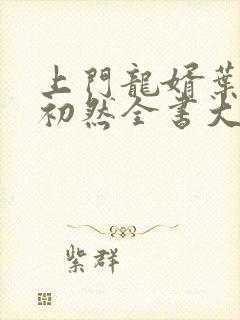 上門龍婿葉
初然全書大
紫群